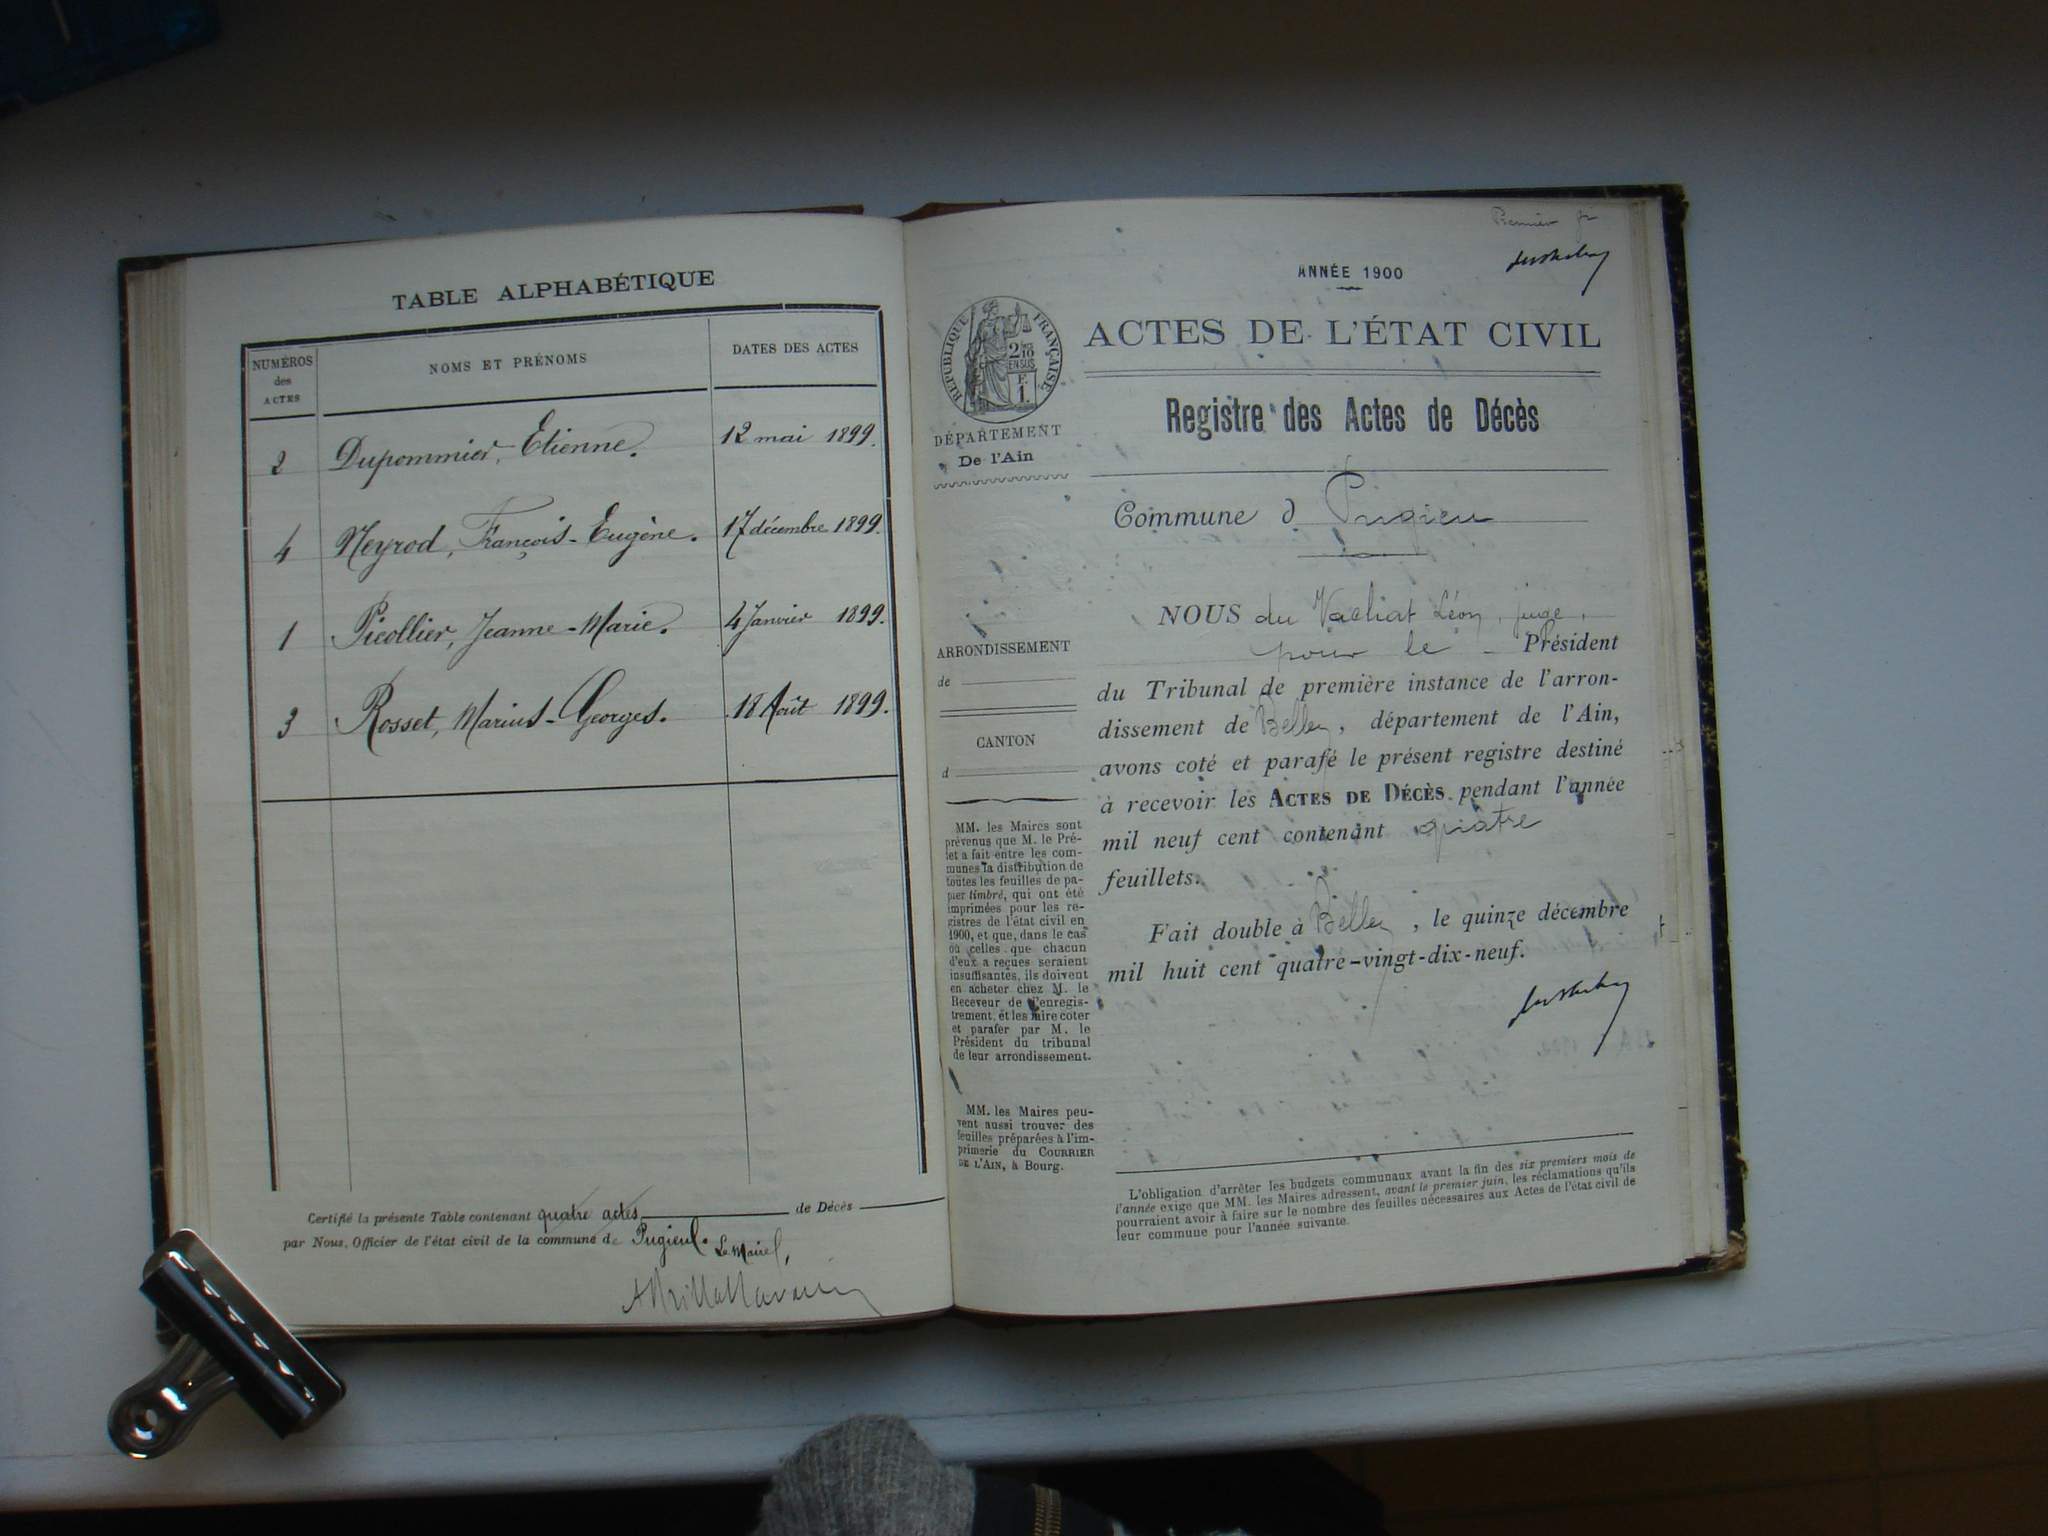 TABLE ALPHABÉTIQUE
NUMÉROS
des
ACTES
NOMS ET PRÉNOMS
DATES DES ACTES
2 Dupommier, Etienne. 12 mai 1899.
4 Neyrod, François-Eugène. 17 décembre 1899.
1 Picollier, Jeanne-Marie. 4 Janvier 1899.
3 Rosset, Marius-Georges. 18 Août 1899.
Certifié la présente Table contenant quatre actes de Décès
par Nous, Officier de l'état civil de la commune de Pugieu.
Le Maire,
Premier
ANNÉE 1900
RÉPUBLIQUE FRANÇAISE
2/10
EN SUS
F.
1.
ACTES DE L'ÉTAT CIVIL
Registre des Actes de Décès
DÉPARTEMENT
De l'Ain
Commune d Pugieu
ARRONDISSEMENT
de
CANTON
d
MM. les Maires sont
prévenus que M. le Pré-
fet a fait entre les com-
munes la distribution de
toutes les feuilles de pa-
pier timbré, qui ont été
imprimées pour les re-
gistres de l'état civil en
1900, et que, dans le cas
où celles que chacun
d'eux a reçues seraient
insuffisantes, ils doivent
en acheter chez M. le
Receveur de l'enregis-
trement, et les faire coter
et parafer par M. le
Président du tribunal
de leur arrondissement.
MM. les Maires peu-
vent aussi trouver des
feuilles préparées à l'im-
primerie du COURRIER
DE L'AIN, à Bourg.
NOUS du Vachat Léon, juge,
pour le Président
du Tribunal de première instance de l'arron-
dissement de Belley, département de l'Ain,
avons coté et parafé le présent registre destiné
à recevoir les ACTES DE DÉCÈS pendant l'année
mil neuf cent contenant quatre
feuillets.
Fait double à Belley, le quinze décembre
mil huit cent quatre-vingt-dix-neuf.
L'obligation d'arrêter les budgets communaux avant la fin des six premiers mois de
l'année exige que MM. les Maires adressent, avant le premier juin, les réclamations qu'ils
pourraient avoir à faire sur le nombre des feuilles nécessaires aux Actes de l'état civil de
leur commune pour l'année suivante.